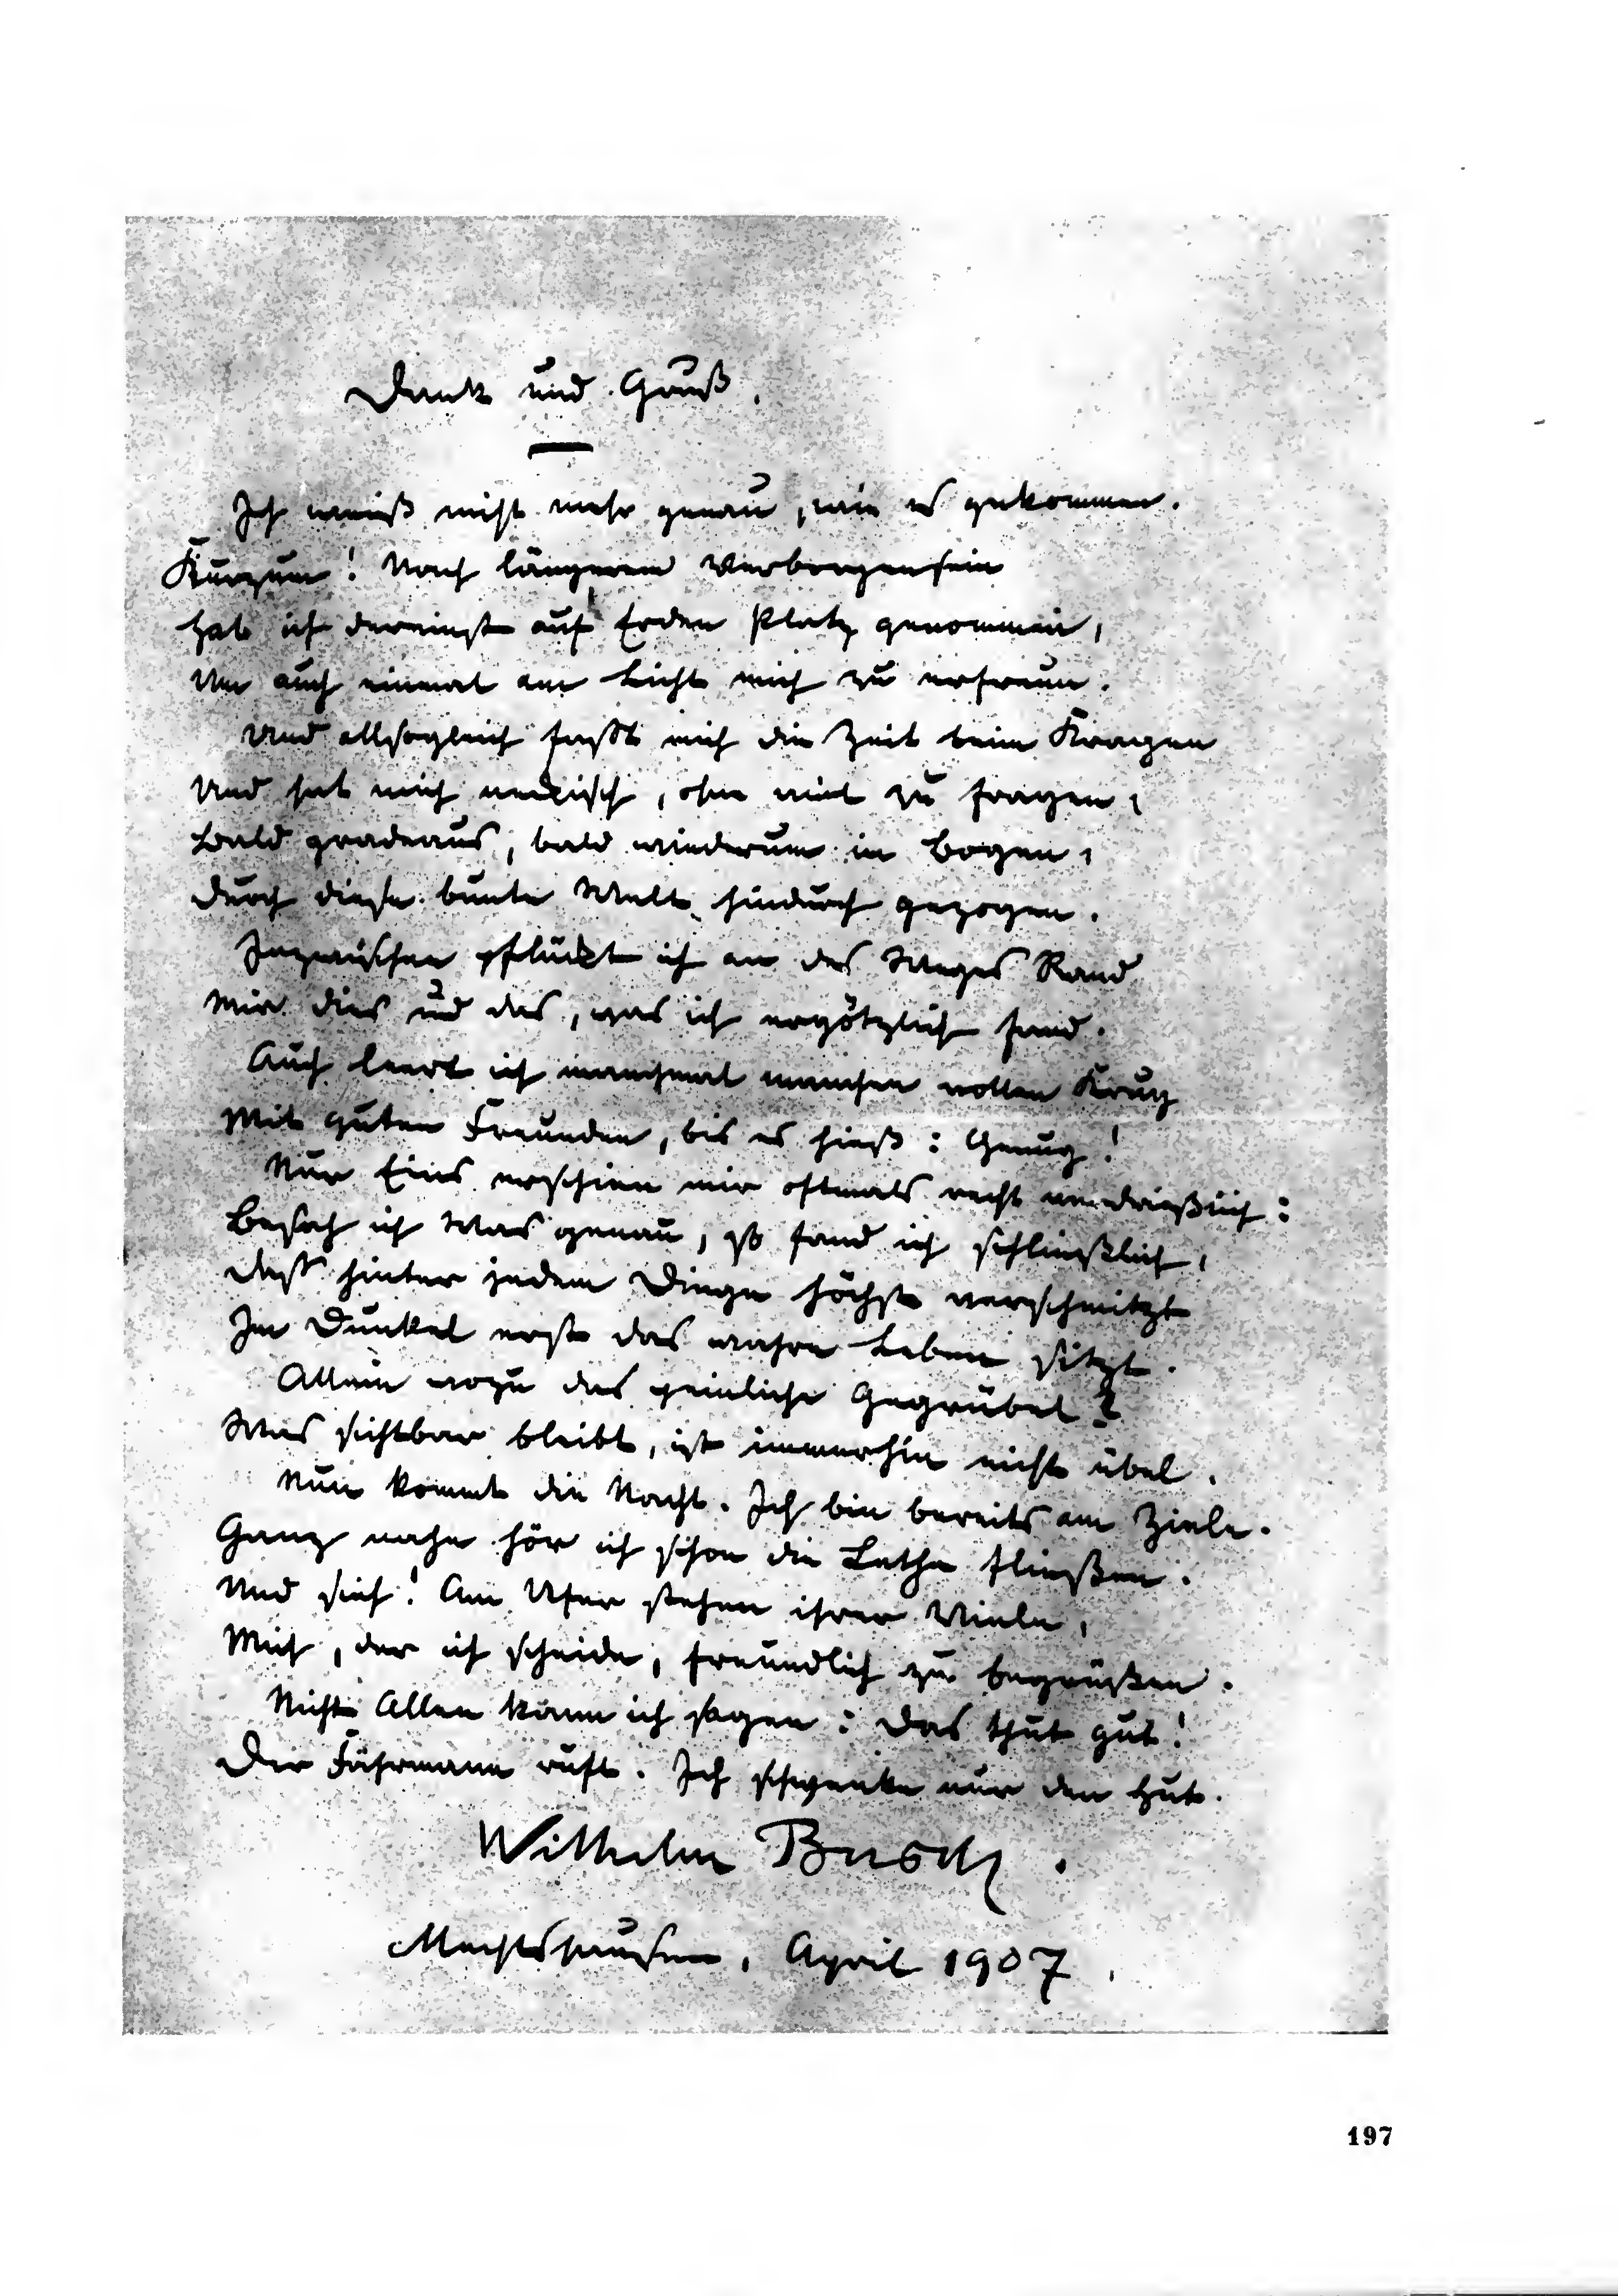 Dank und Gruß.
Ich weiß nicht mehr genau, wie es gekommen.
Kurzum! Nach längerem Verborgensein
Hab ich dereinst auf Erden Platz genommen,
Um auch einmal am Licht mich zu erfreun.
Und allsogleich faßt mich die Zeit beim Kragen
Und hat mich neckisch, ohne viel zu fragen,
Bald gradeaus, bald wiederum in Bogen,
Durch diese bunte Welt hindurch gezogen.
Inzwischen pflückt ich an des Weges Rand
Mir dies und das, was ich ergötzlich fand.
Auch leert ich manchmal manchen vollen Krug
Mit guten Freunden, bis es hieß: Genug!
Nur Eins erschien mir oftmals recht verdrießlich:
Besah ich Was genau, so fand ich schließlich,
Daß hinter jedem Dinge höchst verschmitzt
Im Dunkel erst das wahre Leben sitzt.
Allein wozu das peinliche Gegrübel?
Was sichtbar bleibt, ist immerhin nicht übel.
Nun kommt die Nacht. Ich bin bereits am Ziele.
Ganz nahe hör ich schon die Lethe fließen.
Und sieh! Am Ufer stehen ihrer Viele,
Mich, der ich scheide, freundlich zu begrüßen.
Nicht Allen kann ich sagen: Das thut gut!
Der Fährmann ruft. Ich schwenke nur den Hut.
Wilhelm Busch.
Mechtshausen, April 1907.
197